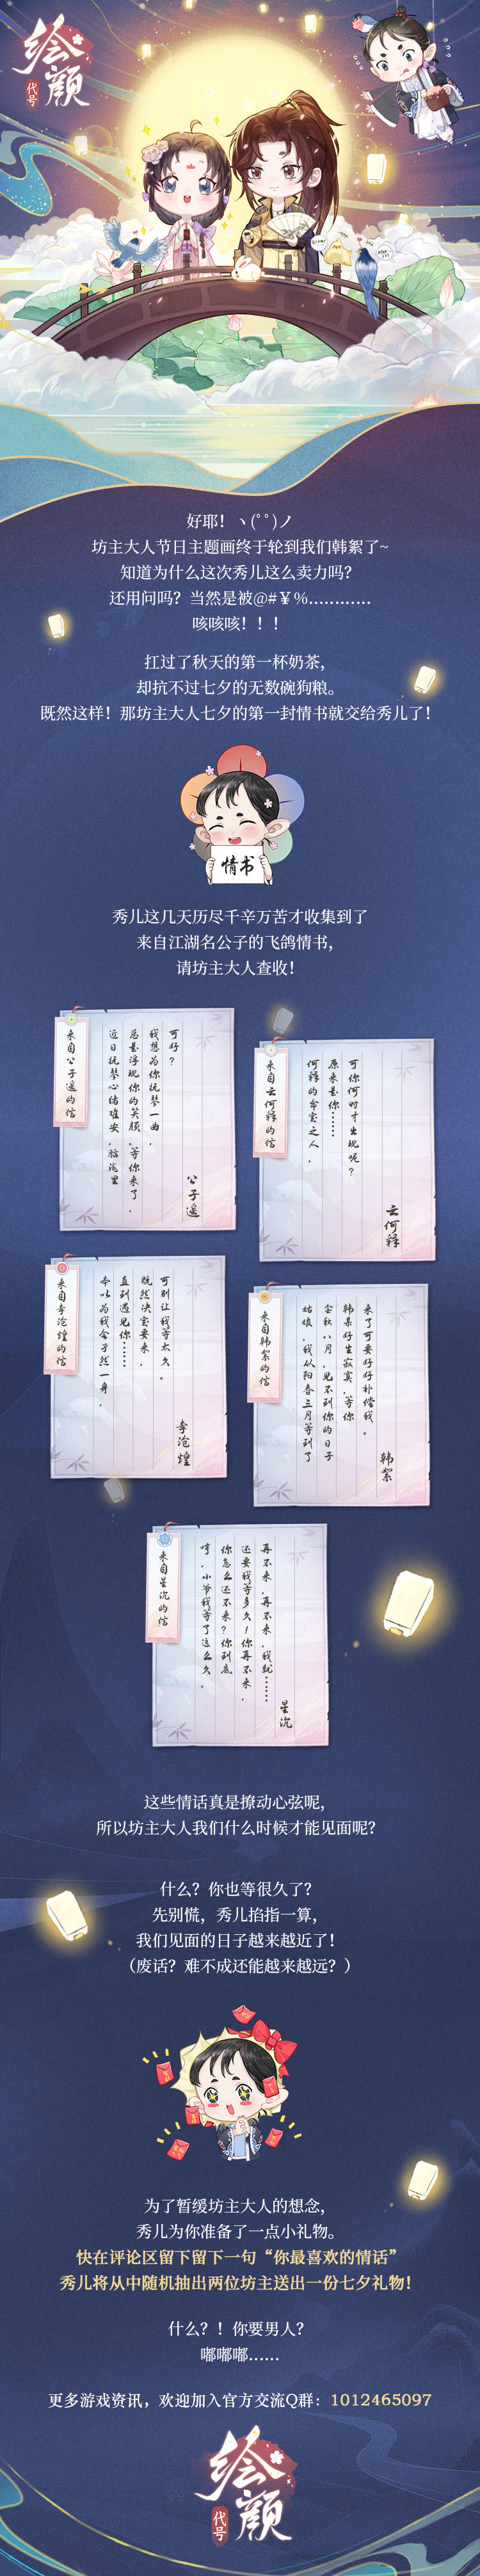 绘颜
代号
好耶！ヽ(ﾟﾟ)ノ
坊主大人节日主题画终于轮到我们韩絮了~
知道为什么这次秀儿这么卖力吗？
还用问吗？当然是被@#￥%…………
咳咳咳！！！
扛过了秋天的第一杯奶茶，
却抗不过七夕的无数碗狗粮。
既然这样！那坊主大人七夕的第一封情书就交给秀儿了！
情书
秀儿这几天历尽千辛万苦才收集到了
来自江湖名公子的飞鸽情书，
请坊主大人查收！
来自公子遥的信
近日抚琴心绪难安，脑海里
总是浮现你的笑颜。等你来了，
我想为你抚琴一曲，
可好？
公子遥
来自云何释的信
何释的命宝之人，
原来是你……
可你何时才出现呢？
云何释
来自李沧煌的信
本以为我会孑然一身，
直到遇见你……
既然决定要来，
可别让我等太久。
李沧煌
来自韩絮的信
姑娘，我从阳春三月等到了
金秋八月，见不到你的日子
韩某好生寂寞，等你
来了可要好好补偿我。
韩絮
来自星沉的信
哼，小爷我等了这么久，
你怎么还不来？你到底
还要我等多久！你再不来，
再不来，再不来，我就……
星沉
这些情话真是撩动心弦呢，
所以坊主大人我们什么时候才能见面呢？
什么？你也等很久了？
先别慌，秀儿掐指一算，
我们见面的日子越来越近了！
（废话？难不成还能越来越远？）
为了暂缓坊主大人的想念，
秀儿为你准备了一点小礼物。
快在评论区留下留下一句“你最喜欢的情话”
秀儿将从中随机抽出两位坊主送出一份七夕礼物！
什么？！你要男人？
嘟嘟嘟……
更多游戏资讯，欢迎加入官方交流Q群：1012465097
绘颜
代号